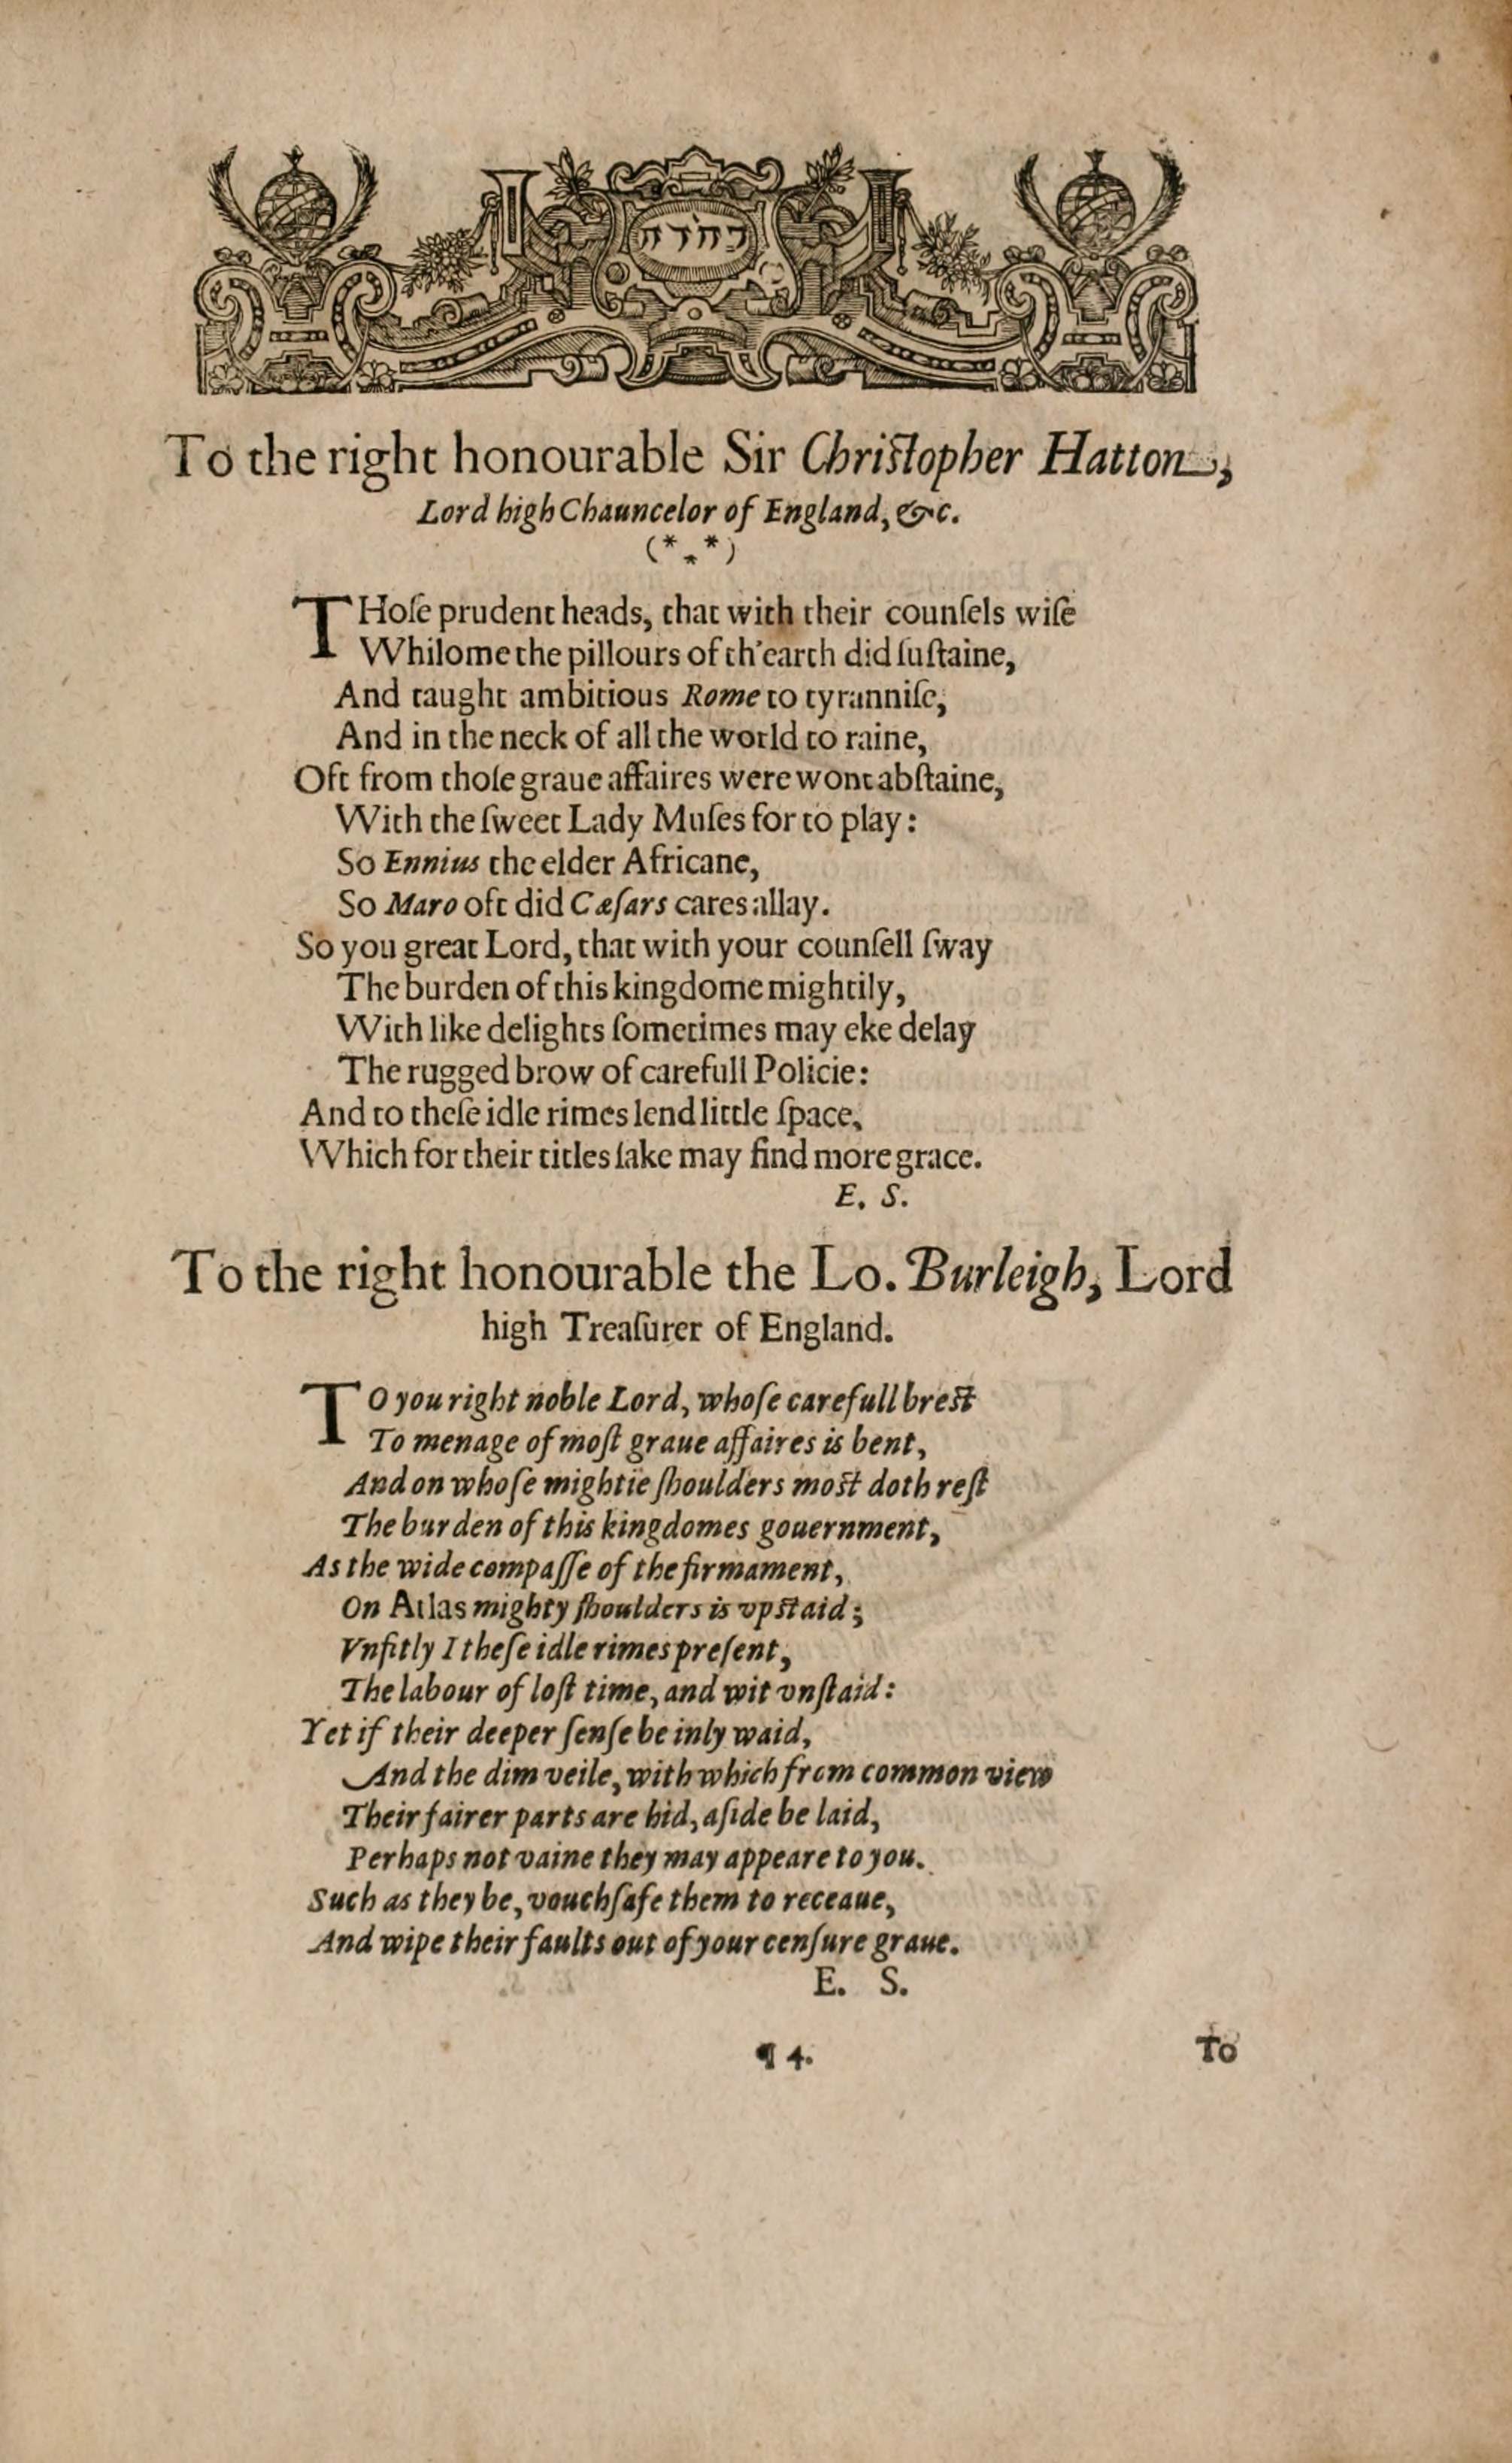 יהוה
To the right honourable Sir Chriſtopher Hatton,
Lord high Chauncelor of England, &c.
(***)
THoſe prudent heads, that with their counſels wiſe
Whilome the pillours of th'earth did ſuſtaine,
And taught ambitious Rome to tyranniſe,
And in the neck of all the world to raine,
Oft from thoſe graue affaires were wont abſtaine,
With the ſweet Lady Muſes for to play:
So Ennius the elder Africane,
So Maro oft did Cæſars cares allay.
So you great Lord, that with your counſell ſway
The burden of this kingdome mightily,
With like delights ſometimes may eke delay
The rugged brow of carefull Policie:
And to theſe idle rimes lend little ſpace,
Which for their titles ſake may find more grace.
E. S.
To the right honourable the Lo. Burleigh, Lord
high Treaſurer of England.
TO you right noble Lord, whoſe carefull breſt
To menage of moſt graue affaires is bent,
And on whoſe mightie ſhoulders moſt doth reſt
The burden of this kingdomes gouernment,
As the wide compaſſe of the firmament,
On Atlas mighty ſhoulders is vpſtaid;
Vnfitly I theſe idle rimes preſent,
The labour of loſt time, and wit vnſtaid:
Yet if their deeper ſenſe be inly waid,
And the dim veile, with which from common view
Their fairer parts are hid, aſide be laid,
Perhaps not vaine they may appeare to you.
Such as they be, vouchſafe them to receaue,
And wipe their faults out of your cenſure graue.
E. S.
¶ 4.
To